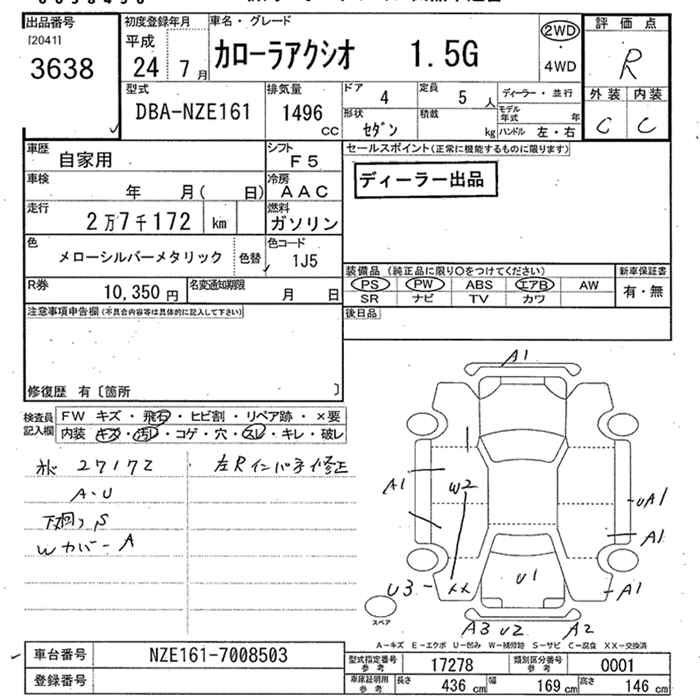 出品番号 初度登録年月 車名・グレード 評価点
[2041] 平成 カローラアクシオ 1.5G 2WD R
3638 24 7月 4WD
型式 排気量 ドア 4 定員 5人 ディーラー・並行 外装 内装
DBA-NZE161 1496cc 形状 セダン 積載 kg モデル年式 年 C C
ハンドル 左・右
車歴 自家用 シフト F5 セールスポイント(正常に機能するものに限ります)
車検 年 月( 日) 冷房 AAC ディーラー出品
走行 2万7千172 km 燃料 ガソリン
色 メローシルバーメタリック 色替 色コード 1J5
装備品(純正品に限り○をつけてください) 新車保証書
R券 10,350円 名変通知期限 月 日 PS PW ABS エアB AW 有・無
SR ナビ TV カワ
注意事項申告欄(不具合内容等は具体的に記入して下さい) 後日品
修復歴 有〔箇所 〕
検査員記入欄 FW キズ・飛石・ヒビ割・リペア跡・×要
内装 キズ・汚レ・コゲ・穴・スレ・キレ・破レ
27172 左Rインパネ修正
A・U
下廻りS
Wカバー A
A1
A1
W2
UA1
A1
A1
U3
XX
U1
A3 U2 A2
スペア
A－キズ E－エクボ U－凹み W－補修跡 S－サビ C－腐食 XX－交換済
車台番号 NZE161-7008503
型式指定番号 参考 17278 類別区分番号 参考 0001
登録番号
車庫証明用 参考 長さ 436cm 幅 169cm 高さ 146cm